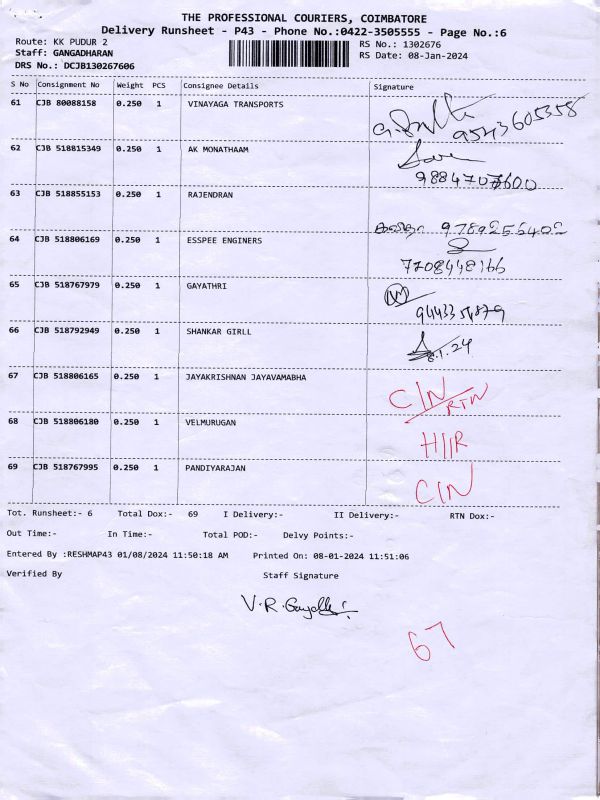 THE PROFESSIONAL COURIERS, COIMBATORE
Delivery Runsheet - P43 - Phone No.:0422-3505555 - Page No.:6
Route: KK PUDUR 2 RS No.: 1302676
Staff: GANGADHARAN RS Date: 08-Jan-2024
DRS No.: DCJB130267606
S No Consignment No Weight PCS Consignee Details Signature
61 CJB 80088158 0.250 1 VINAYAGA TRANSPORTS
9543605358
62 CJB 518815349 0.250 1 AK MONATHAAM
9884707600
63 CJB 518855153 0.250 1 RAJENDRAN
9789256402
64 CJB 518806169 0.250 1 ESSPEE ENGINERS
7708448166
65 CJB 518767979 0.250 1 GAYATHRI
9443354879
66 CJB 518792949 0.250 1 SHANKAR GIRLL
8.1.24
67 CJB 518806165 0.250 1 JAYAKRISHNAN JAYAVAMABHA C/N RTN
68 CJB 518806180 0.250 1 VELMURUGAN H//R
69 CJB 518767995 0.250 1 PANDIYARAJAN C/N
Tot. Runsheet:- 6 Total Dox:- 69 I Delivery:- II Delivery:- RTN Dox:-
Out Time:- In Time:- Total POD:- Delvy Points:-
Entered By :RESHMAP43 01/08/2024 11:50:18 AM Printed On: 08-01-2024 11:51:06
Verified By Staff Signature
V.R.
67